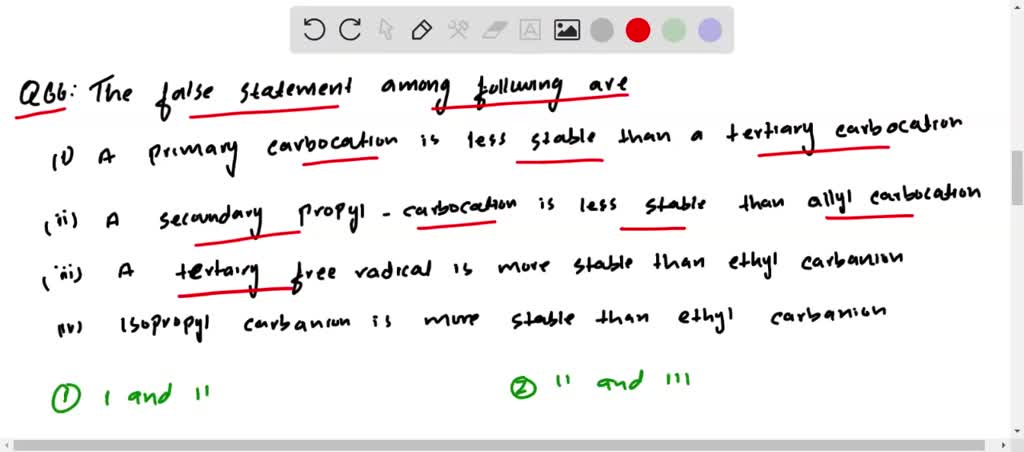 Q66: The false statement among following are
(i) A primary carbocation is less stable than a tertiary carbocation
(ii) A secondary propyl - carbocation is less stable than allyl carbocation
(iii) A tertairy free radical is more stable than ethyl carbanion
(iv) Isopropyl carbanion is more stable than ethyl carbanion
① I and II ② II and III